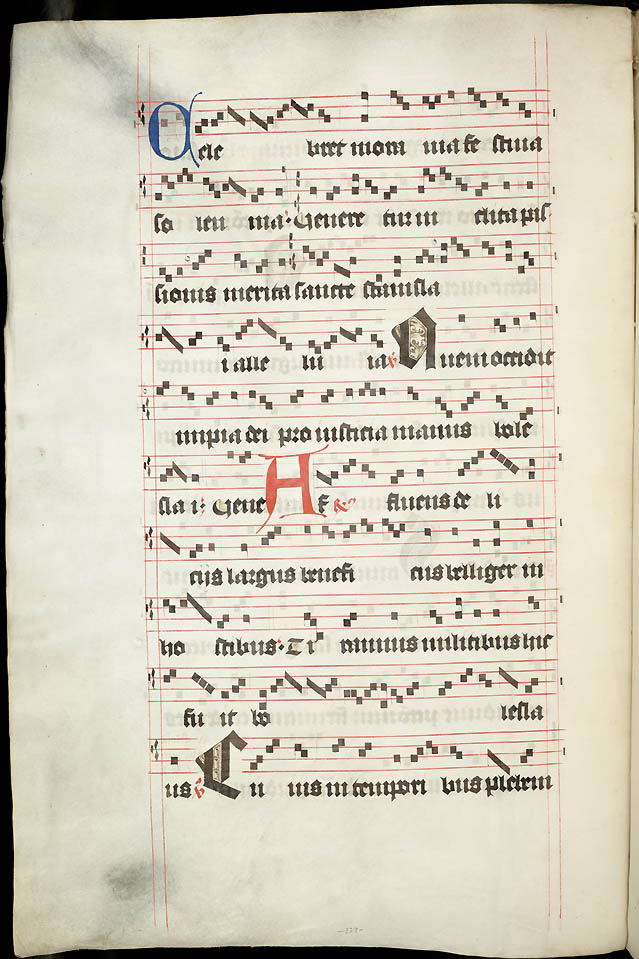 Cele bret mom ma fe stiua
so len ma : Genere cur in clita pas
sionis merita sancte stanisla
i alle lu ia ℣ Quem occidit
impia dei pro iusticia manus bole
sla i : Gene Af ℟ fluens de li
cijs largus benefi cus belliger in
ho stibus · Ti rannus militibus hic
fu it bo lesla
us ℣ Cu ius in tempori bus plebem